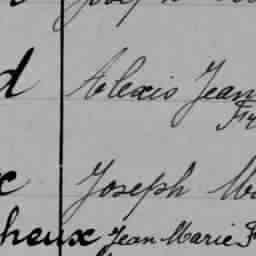 d Alexis Jean
Joseph
heux Jean Marie F